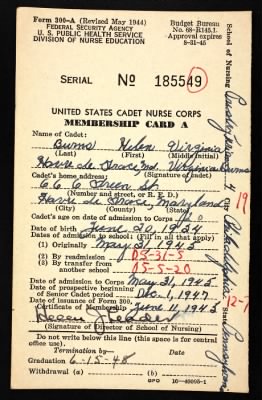 Form 300-A (Revised May 1944)
FEDERAL SECURITY AGENCY
U. S. PUBLIC HEALTH SERVICE
DIVISION OF NURSE EDUCATION
Budget Bureau
No. 68-R145.1.
Approval expires
5-31-45
SERIAL No 185549
UNITED STATES CADET NURSE CORPS
MEMBERSHIP CARD A
Name of Cadet:
Burns Helen Virginia
(Last) (First) (Middle initial)
Havre de Grace, Md. Virginia Burns
Cadet's home address: (Signature of cadet)
666 Green St.
(Number and street, or R. E. D.)
Havre de Grace, Maryland
(City) (County) (State)
Cadet's age on date of admission to Corps
Date of birth June 20, 1924
Dates of admission to school: (Fill in all that apply)
(1) Originally May 31, 1945
(2) By readmission 05-31-5
(3) By transfer from
another school 05-5-20
Date of admission to Corps May 31, 1945
Date of prospective beginning
of Senior Cadet period Dec. 1, 1947
Date of issuance of Form 300,
Certificate of Membership June 11, 1945
(Signature of Director of School of Nursing)
Do not write below this line (this space is for
official use).
Termination by Date
Graduation 6-15-48
Withdrawal (a)
(b)
GPO 16-40095-1
School of Nursing
City Philadelphia State Pennsylvania
19
12-7